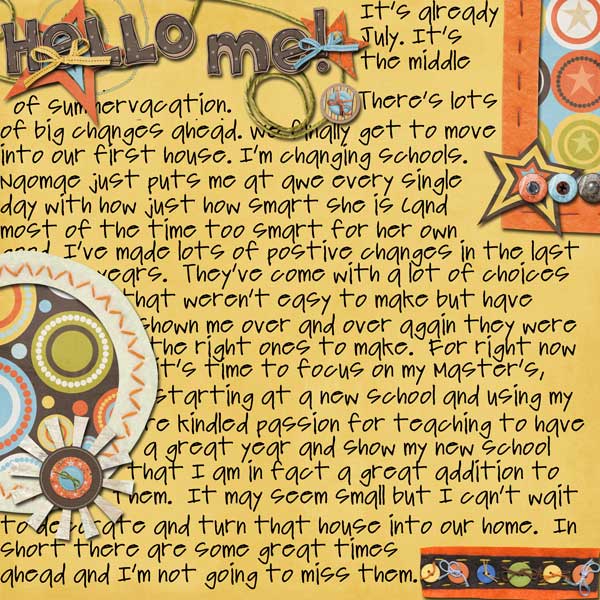 HeLLO me!
It's already
July. It's
the middle
of summervacation. There's lots
of big changes ahead. we finally get to move
into our first house. I'm changing schools.
Naomae just puts me at awe every single
day with how just how smart she is (and
most of the time too smart for her own
I've made lots of postive changes in the last
years. They've come with a lot of choices
that weren't easy to make but have
shown me over and over again they were
the right ones to make. For right now
it's time to focus on my Master's,
starting at a new school and using my
re kindled passion for teaching to have
a great year and show my new school
that I am in fact a great addition to
them. It may seem small but I can't wait
to decorate and turn that house into our home. In
short there are some great times
ahead and I'm not going to miss them.